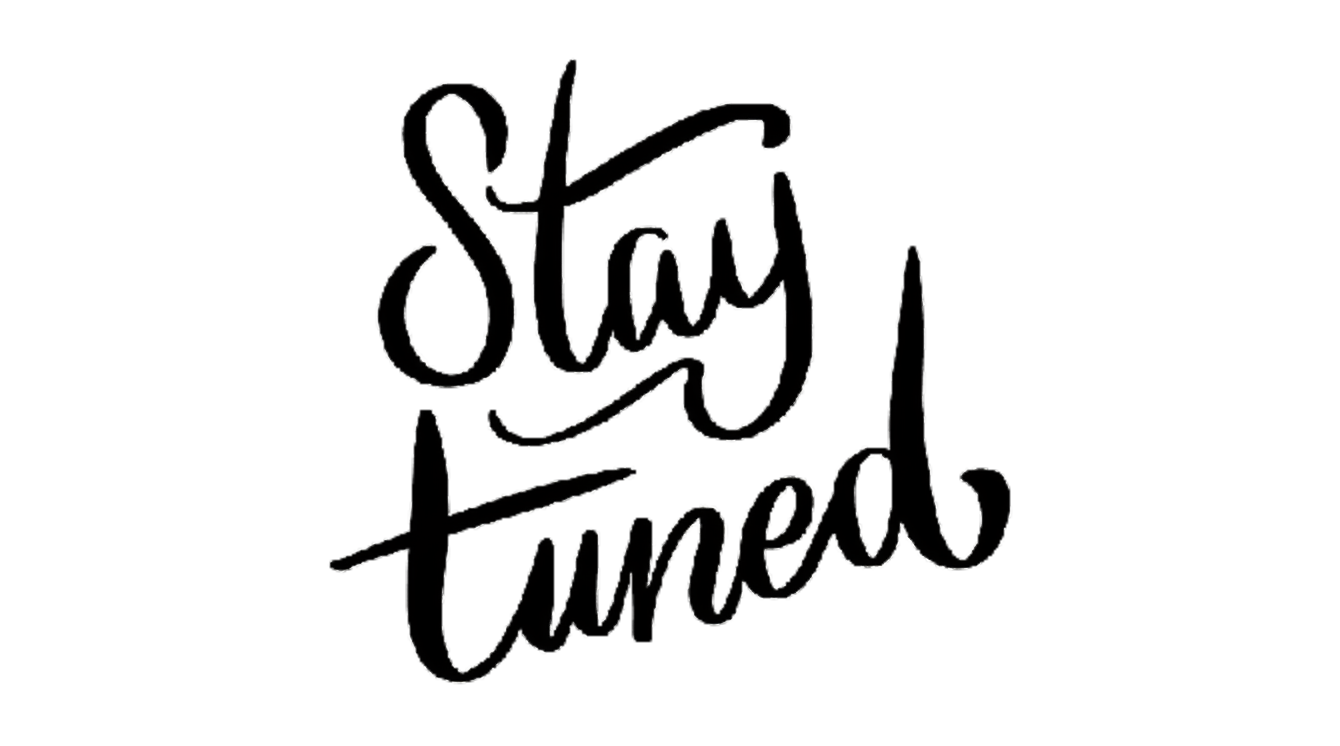 Stay
tuned